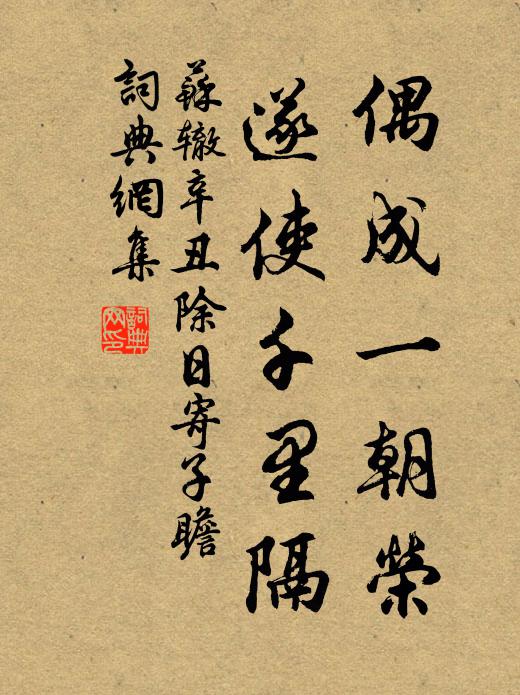 偶成一朝榮
遂使千里隔
蘇轍辛丑除日寄子瞻
詞典網集
詞典网印